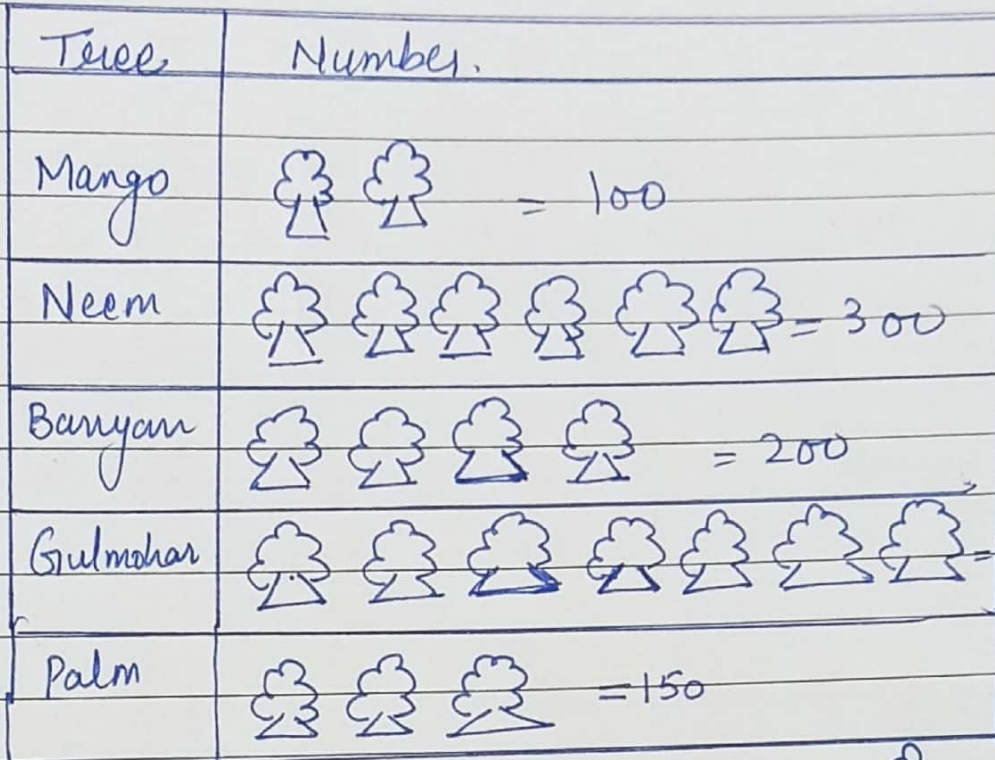 Tree Number.
Mango = 100
Neem = 300
Banyan = 200
Gulmohar =
Palm = 150